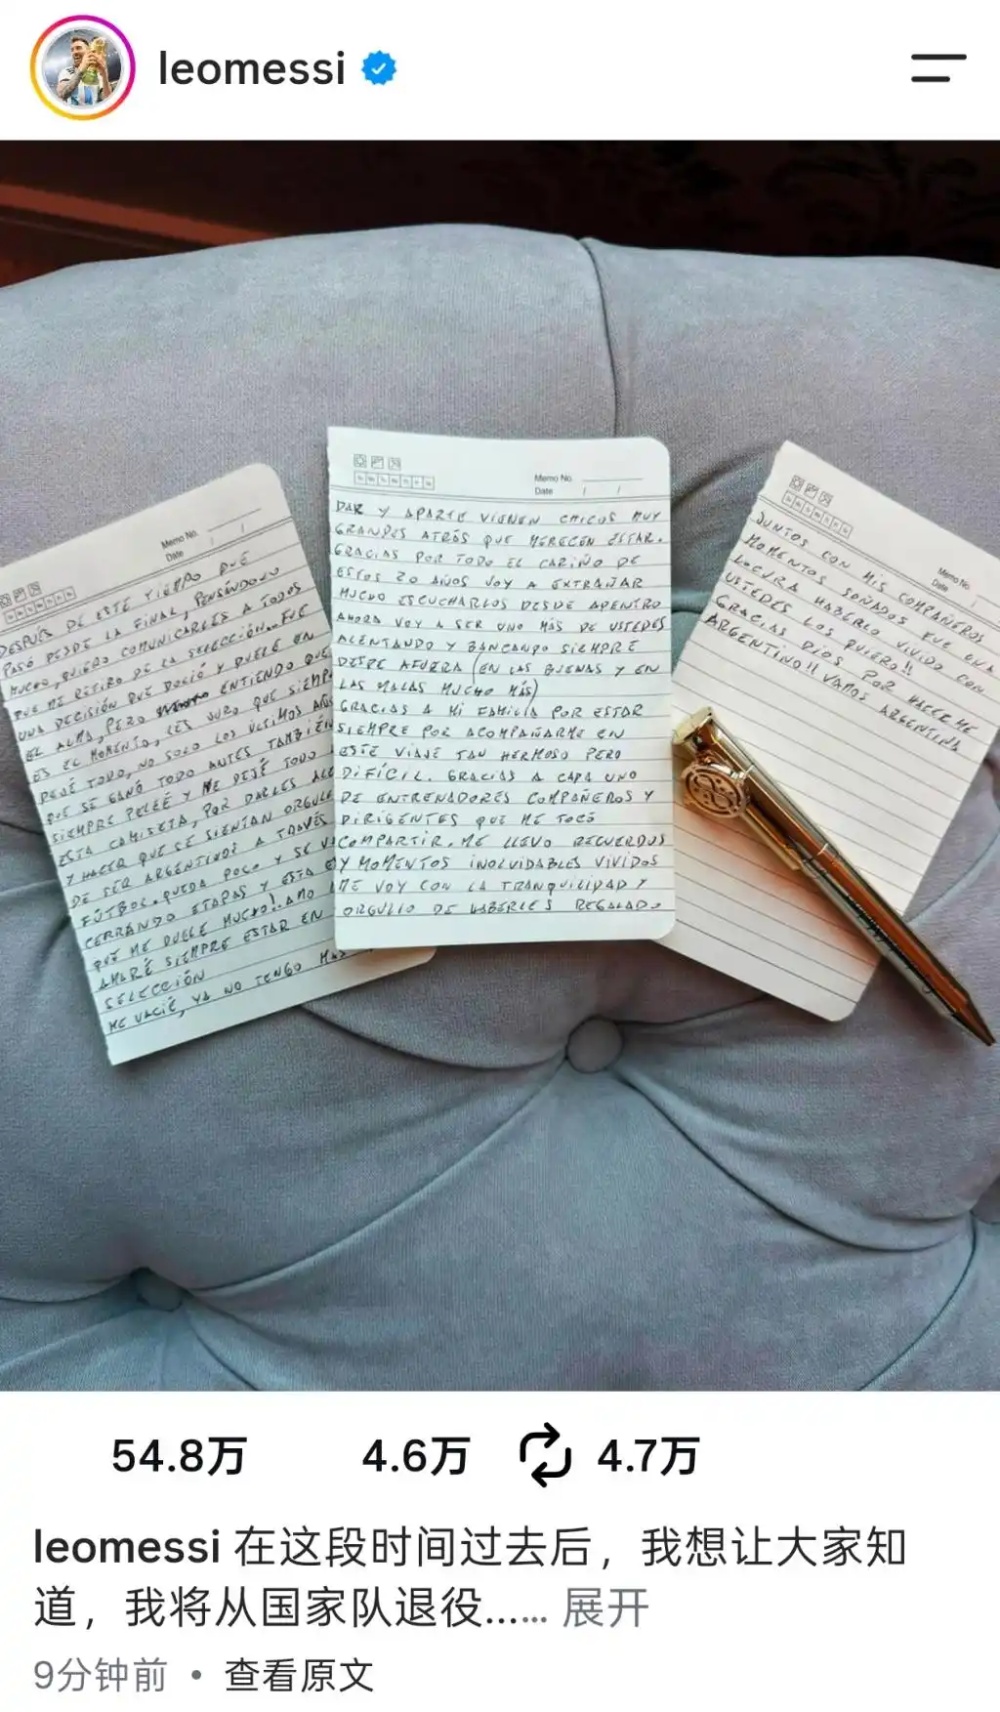 leomessi
Memo No.
Date / /
DESPUÉS DE ESTE TIEMPO QUE
PASÓ DESDE LA FINAL, PENSÁNDOLO
MUCHO, QUIERO COMUNICARLES A TODOS
QUE ME RETIRO DE LA SELECCIÓN... FUE
UNA DECISIÓN QUE DOLIÓ Y DUELE EN
EL ALMA, PERO ENTIENDO QUE
ES EL MOMENTO, LES JURO QUE SIEMP
DEJÉ TODO, NO SOLO LOS ÚLTIMOS AÑOS
QUE SE GANÓ TODO ANTES TAMBIÉN
SIEMPRE PELEÉ Y ME DEJÉ TODO
ESTA CAMISETA, POR DARLES
Y HACER QUE SE SIENTAN ORGULL
DE SER ARGENTINOS A TRAVÉS
FÚTBOL. QUEDA POCO Y SE V
CERRANDO ETAPAS Y ESTA E
QUE ME DUELE MUCHO! AMO
AMARÉ SIEMPRE ESTAR EN
SELECCIÓN
ME VACIÉ, YA NO TENGO MÁS
Memo No.
Date / /
DAR Y APARTE VIENEN CHICOS MUY
GRANDES ATRÁS QUE MERECEN ESTAR.
GRACIAS POR TODO EL CARIÑO DE
ESTOS 20 AÑOS VOY A EXTRAÑAR
MUCHO ESCUCHARLOS DESDE ADENTRO
AHORA VOY A SER UNO MÁS DE USTEDES
ALENTANDO Y BANCANDO SIEMPRE
DESDE AFUERA (EN LAS BUENAS Y EN
LAS MALAS MUCHO MÁS)
GRACIAS A MI FAMILIA POR ESTAR
SIEMPRE POR ACOMPAÑARME EN
ESTE VIAJE TAN HERMOSO PERO
DIFÍCIL. GRACIAS A CADA UNO
DE ENTRENADORES COMPAÑEROS Y
DIRIGENTES QUE ME TOCÓ
COMPARTIR. ME LLEVO RECUERDOS
Y MOMENTOS INOLVIDABLES VIVIDOS
ME VOY CON LA TRANQUILIDAD Y
ORGULLO DE HABERLES REGALADO
Memo No.
Date /
JUNTOS CON MIS COMPAÑEROS
MOMENTOS SOÑADOS FUE UNA
LOCURA HABERLO VIVIDO CON
USTEDES LOS QUIERO!!
GRACIAS DIOS POR HACERME
ARGENTINO!! VAMOS ARGENTINA
54.8万 4.6万 4.7万
leomessi 在这段时间过去后，我想让大家知
道，我将从国家队退役...... 展开
9分钟前 • 查看原文